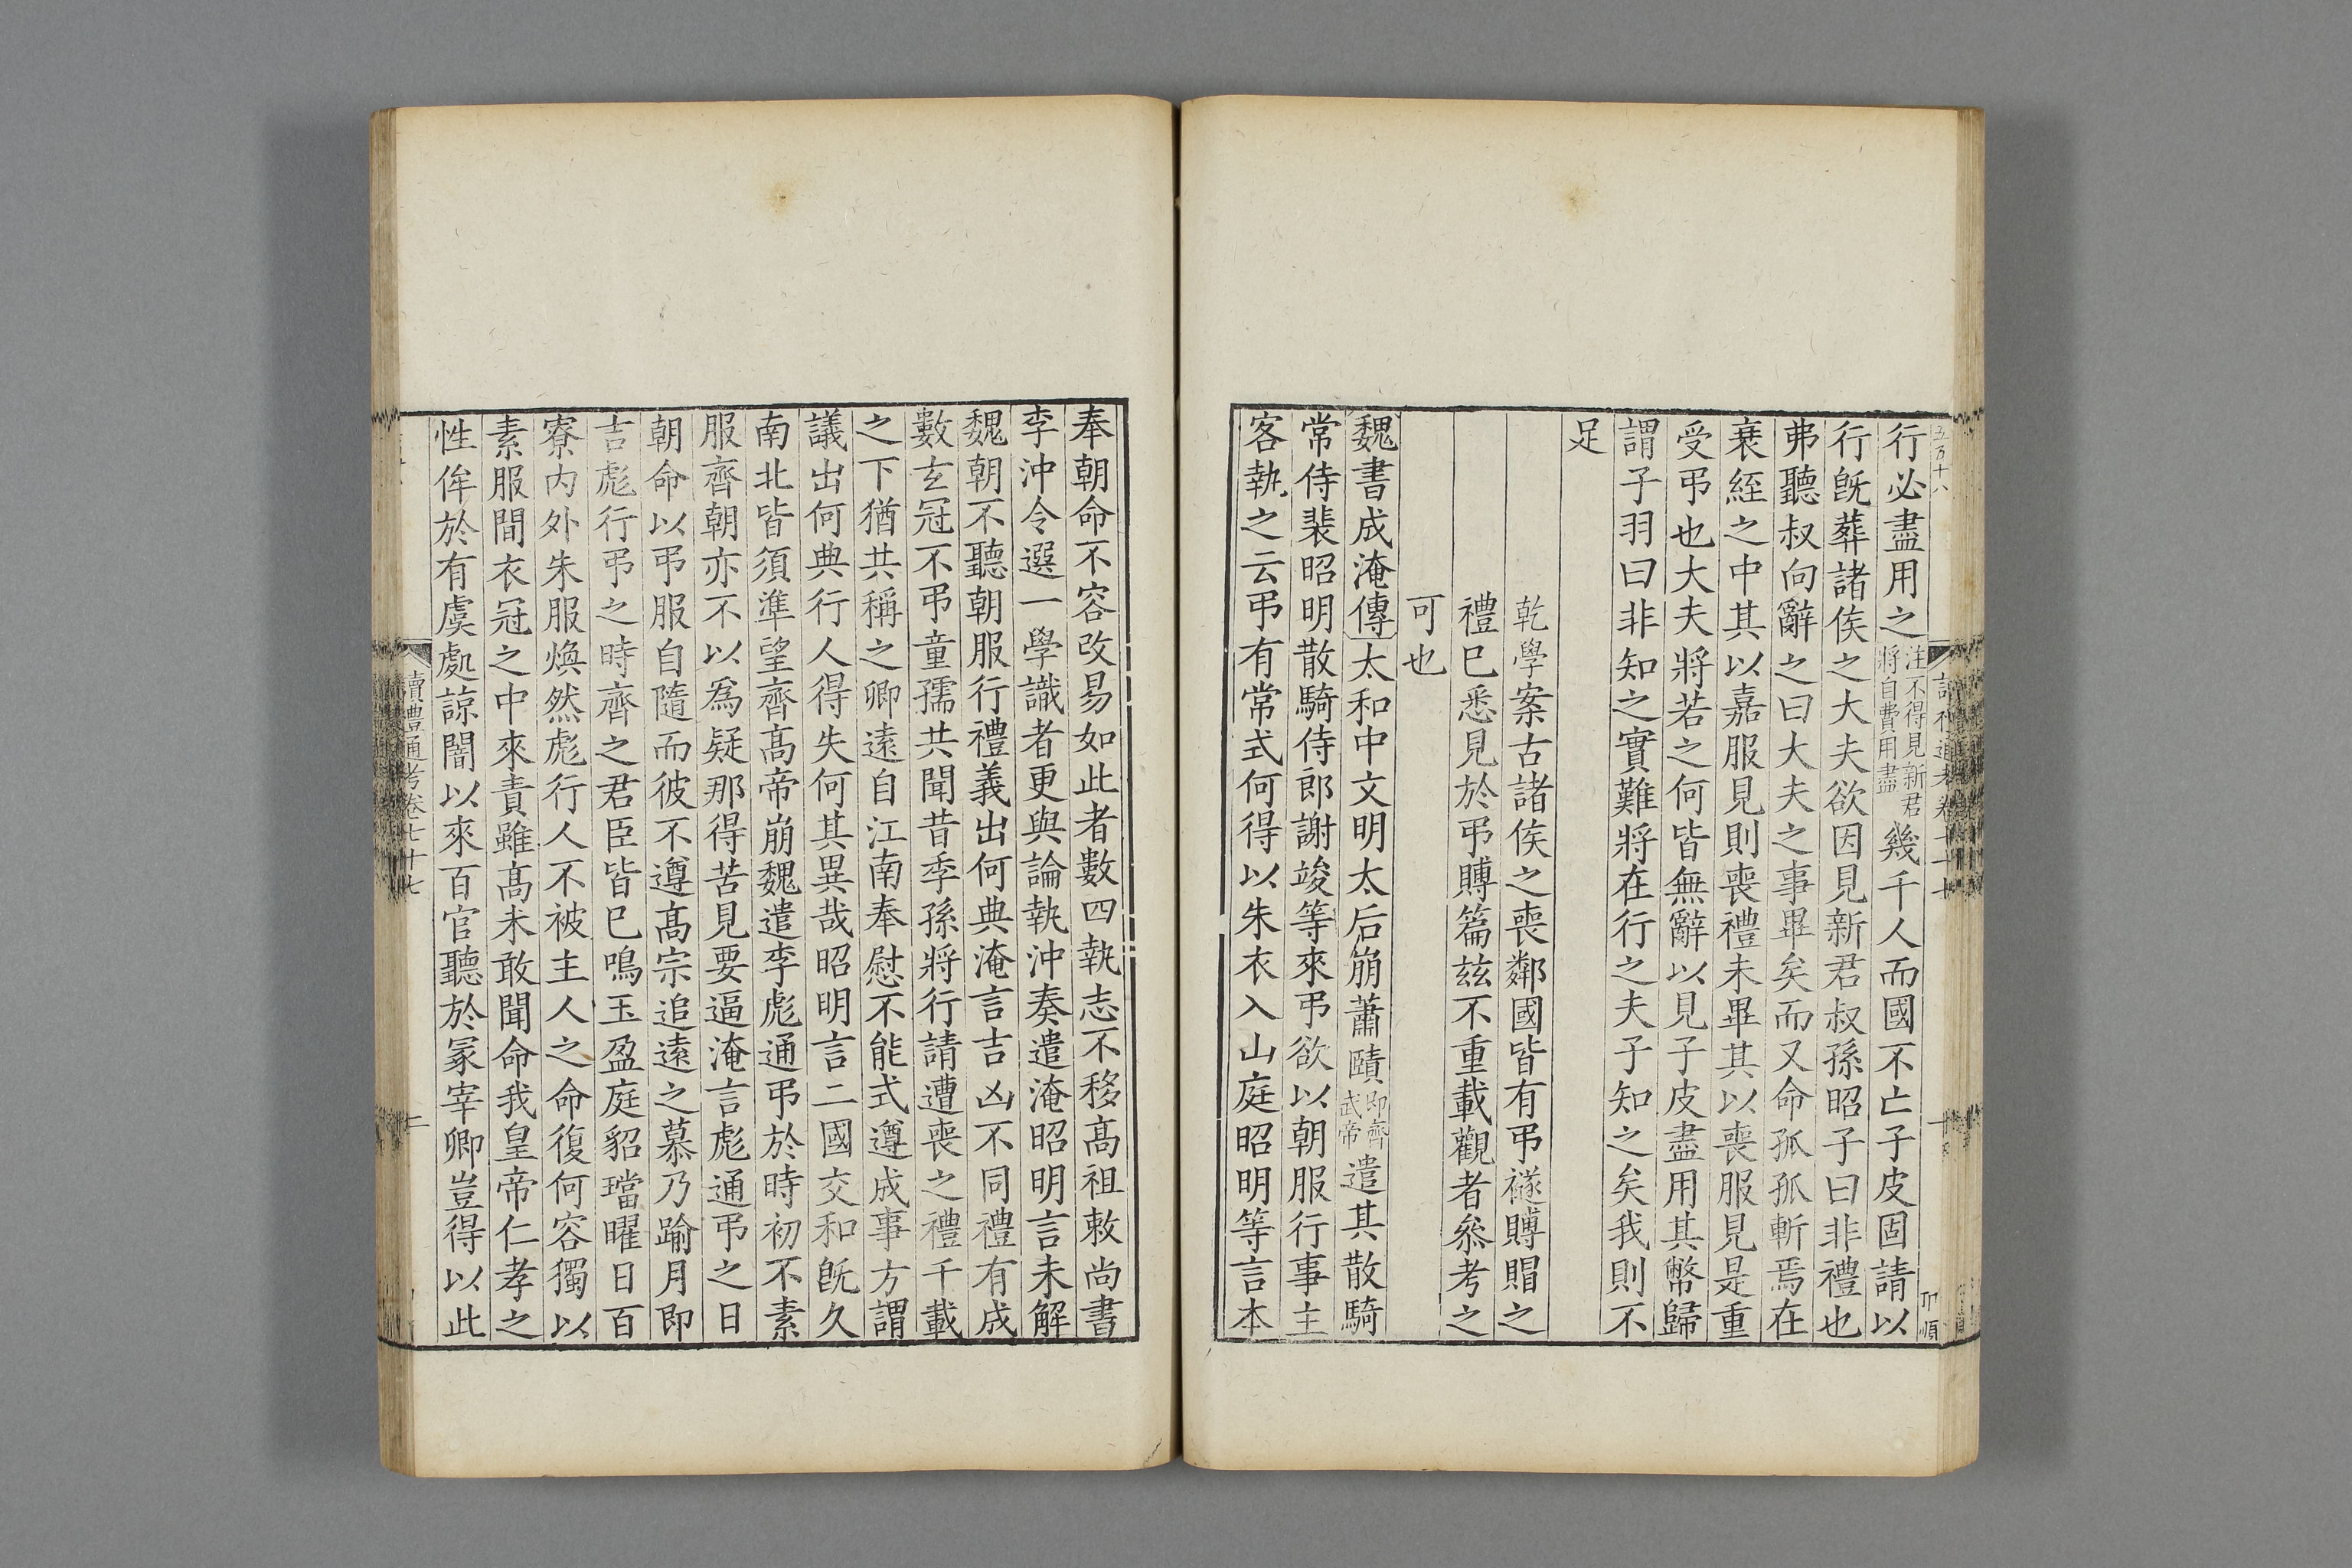 行必盡用之注不得見新君將自費用盡幾千人而國不亡子皮固請以
行旣葬諸侯之大夫欲因見新君叔孫昭子曰非禮也
弗聽叔向辭之曰大夫之事畢矣而又命孤孤斬焉在
衰絰之中其以嘉服見則喪禮未畢其以喪服見是重
受弔也大夫將若之何皆無辭以見子皮盡用其幣歸
謂子羽曰非知之實難將在行之夫子知之矣我則不
足
乾學案古諸侯之喪鄰國皆有弔襚賻賵之
禮已悉見於弔賻篇兹不重載觀者叅考之
可也
魏書成淹傳太和中文明太后崩蕭賾即齊武帝遣其散騎
常侍裴昭明散騎侍郎謝竣等來弔欲以朝服行事主
客執之云弔有常式何得以朱衣入山庭昭明等言本
奉朝命不容改易如此者數四執志不移高祖敕尚書
李沖令選一學識者更與論執沖奏遣淹昭明言未解
魏朝不聽朝服行禮義出何典淹言吉凶不同禮有成
數玄冠不弔童孺共聞昔季孫將行請遭喪之禮千載
之下猶共稱之卿遠自江南奉慰不能式遵成事方謂
議出何典行人得失何其異哉昭明言二國交和旣久
南北皆須準望齊高帝崩魏遣李彪通弔於時初不素
服齊朝亦不以爲疑那得苦見要逼淹言彪通弔之日
朝命以弔服自隨而彼不遵高宗追遠之慕乃踰月即
吉彪行弔之時齊之君臣皆已鳴玉盈庭貂璫曜日百
寮内外朱服煥然彪行人不被主人之命復何容獨以
素服間衣冠之中來責雖高未敢聞命我皇帝仁孝之
性侔於有虞處諒闇以來百官聽於冢宰卿豈得以此
讀禮通考卷七十七
二